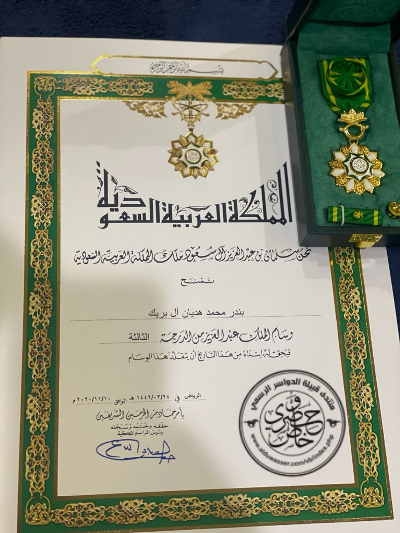 بسم الله الرحمن الرحيم
المملكة العربية السعودية
نحن سلمان بن عبدالعزيز آل سعود ملك المملكة العربية السعودية
نمنح
بندر محمد هديان آل بريك
وسام الملك عبد العزيز من الدرجة الثالثة
فيحق له ابتداء من هذا التاريخ أن يتقلد هذا الوسام
الرياض في ١٤٤٢/٠٣/٢٤ هـ الموافق ٢٠٢٠/١١/١٠ م
بأمر خادم الحرمين الشريفين
حققه وختمه وسجله
رئيس المراسم الملكية
منتدى قبيلة الدواسر الرسمي
حقوق
خاص
www.alduwasser.com/vb/index.php